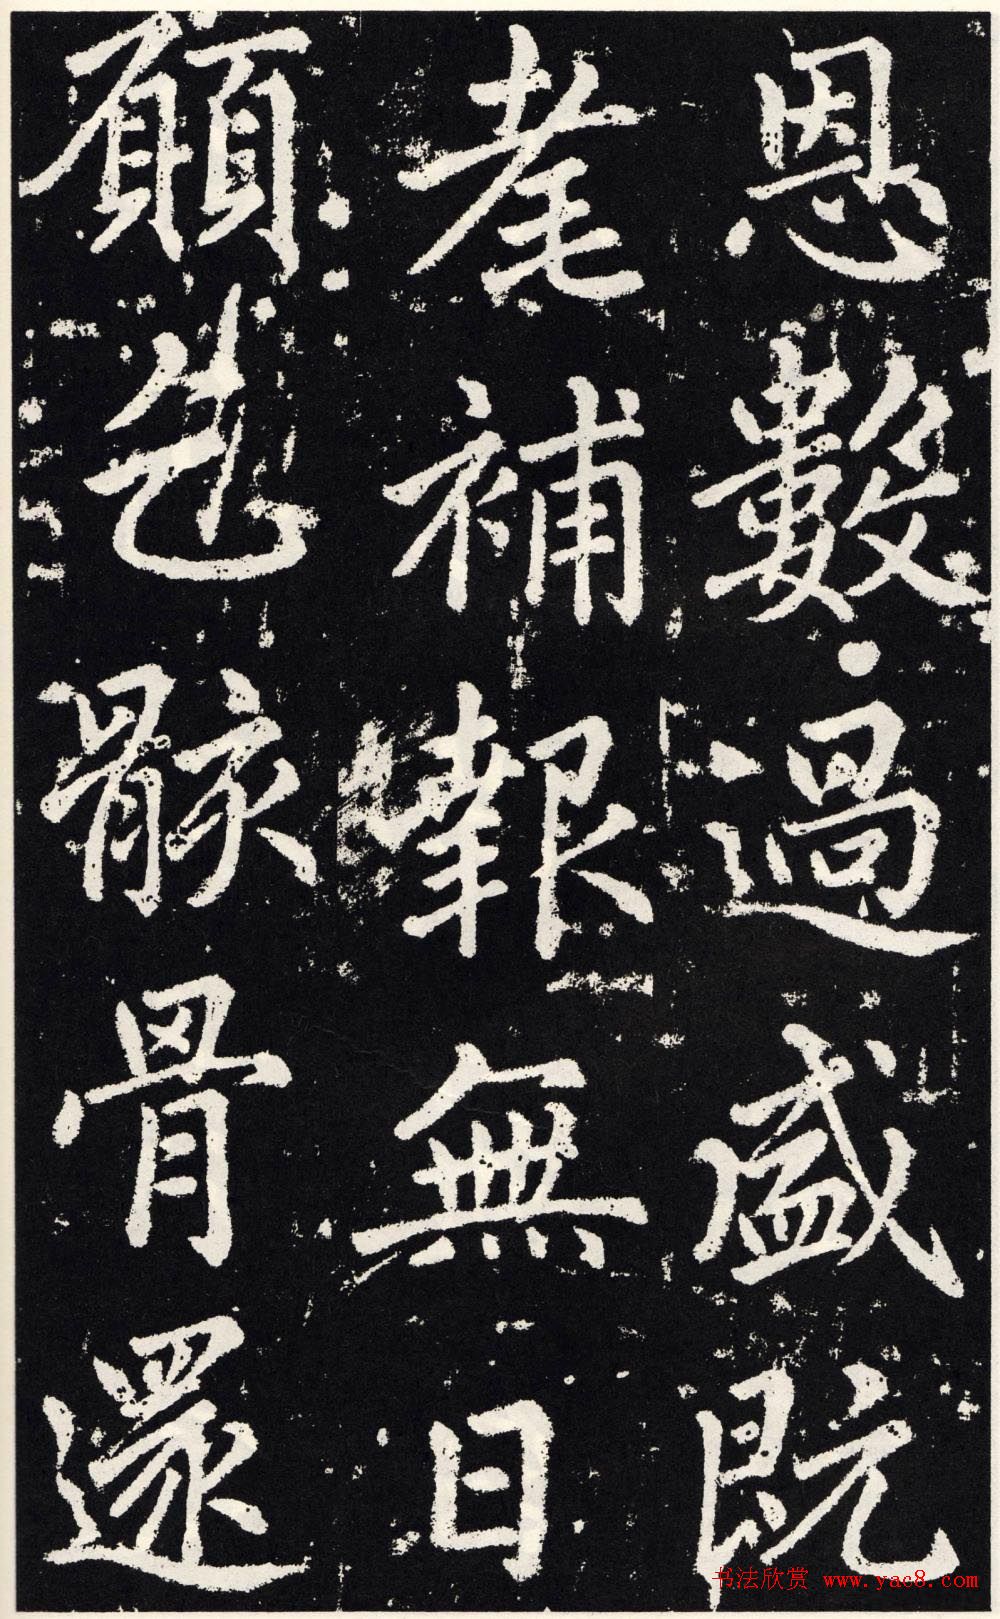 恩數過盛既
耄補報無日
願乞骸骨還
书法欣赏 www.yac8.com